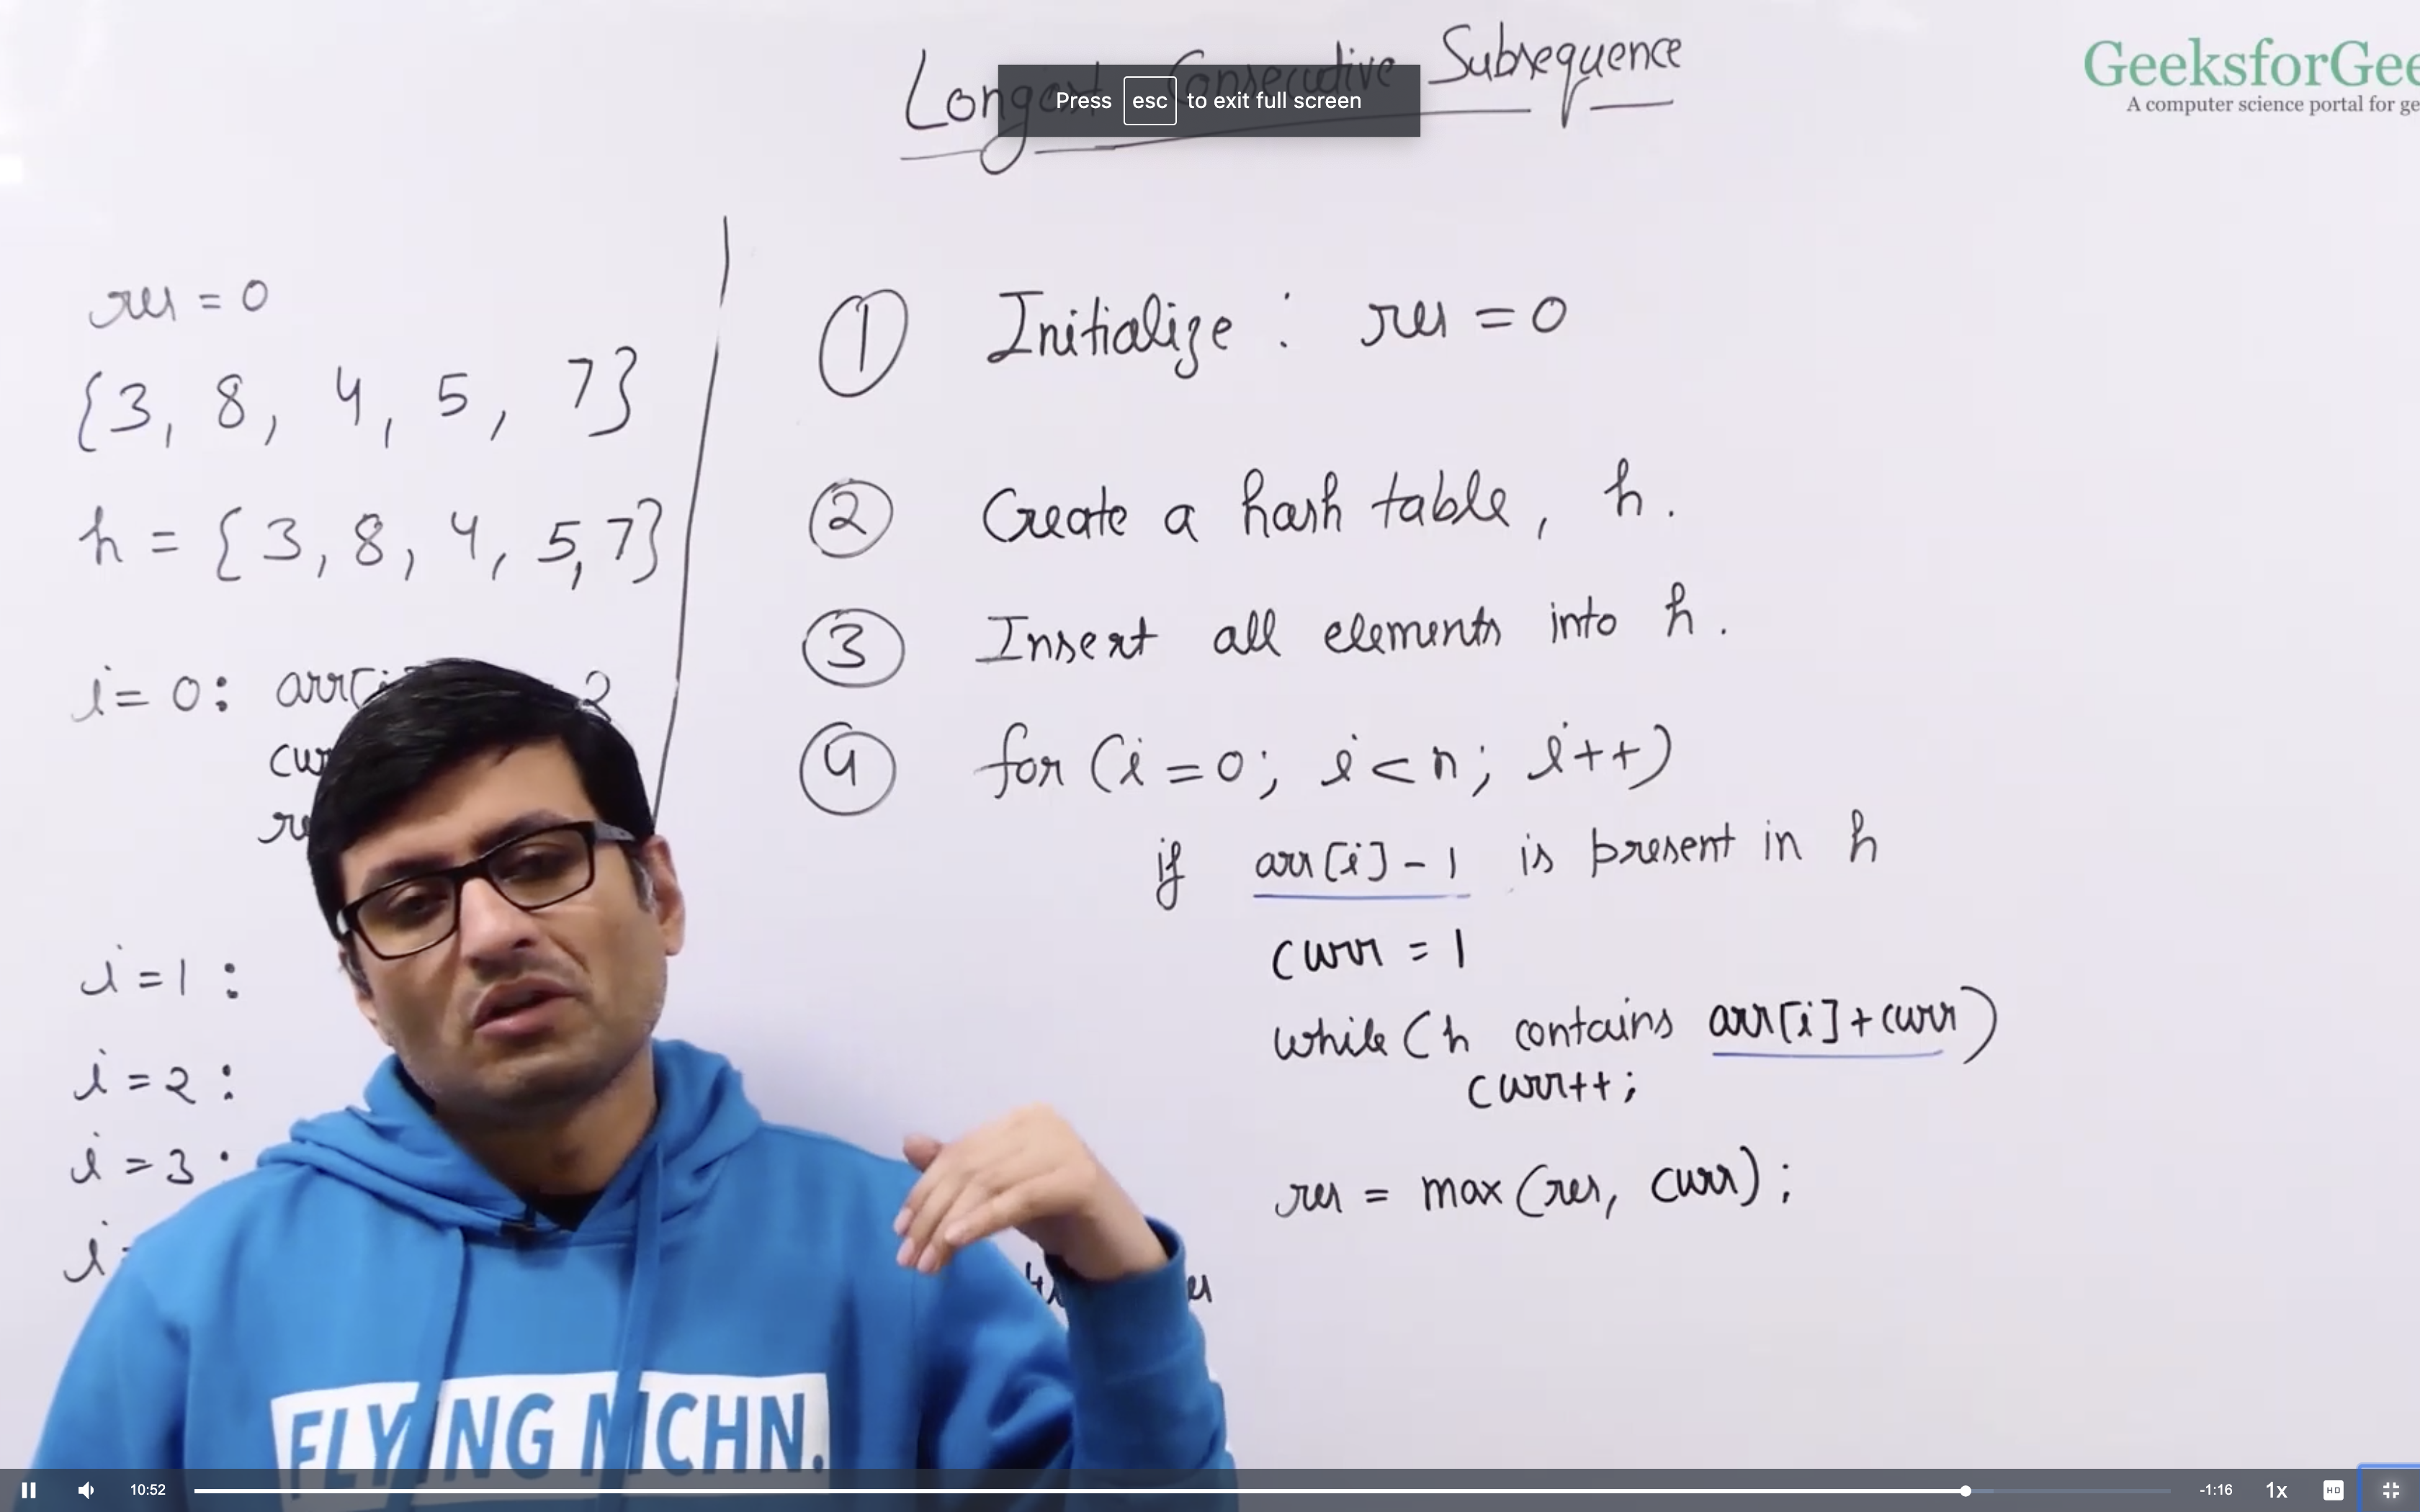 Longest Consecutive Subsequence
Press esc to exit full screen
GeeksforGee
A computer science portal for ge
res = 0
{3, 8, 4, 5, 7}
h = {3, 8, 4, 5, 7}
i = 0: arr[i] 2
i = 1 :
i = 2 :
i = 3 :
i
① Initialize : res = 0
② Create a hash table, h.
③ Insert all elements into h.
④ for (i = 0; i < n; i++)
if arr[i] - 1 is present in h
curr = 1
while (h contains arr[i] + curr)
curr++;
res = max(res, curr);
FLYING MCHN.
10:52
-1:16
1x
HD